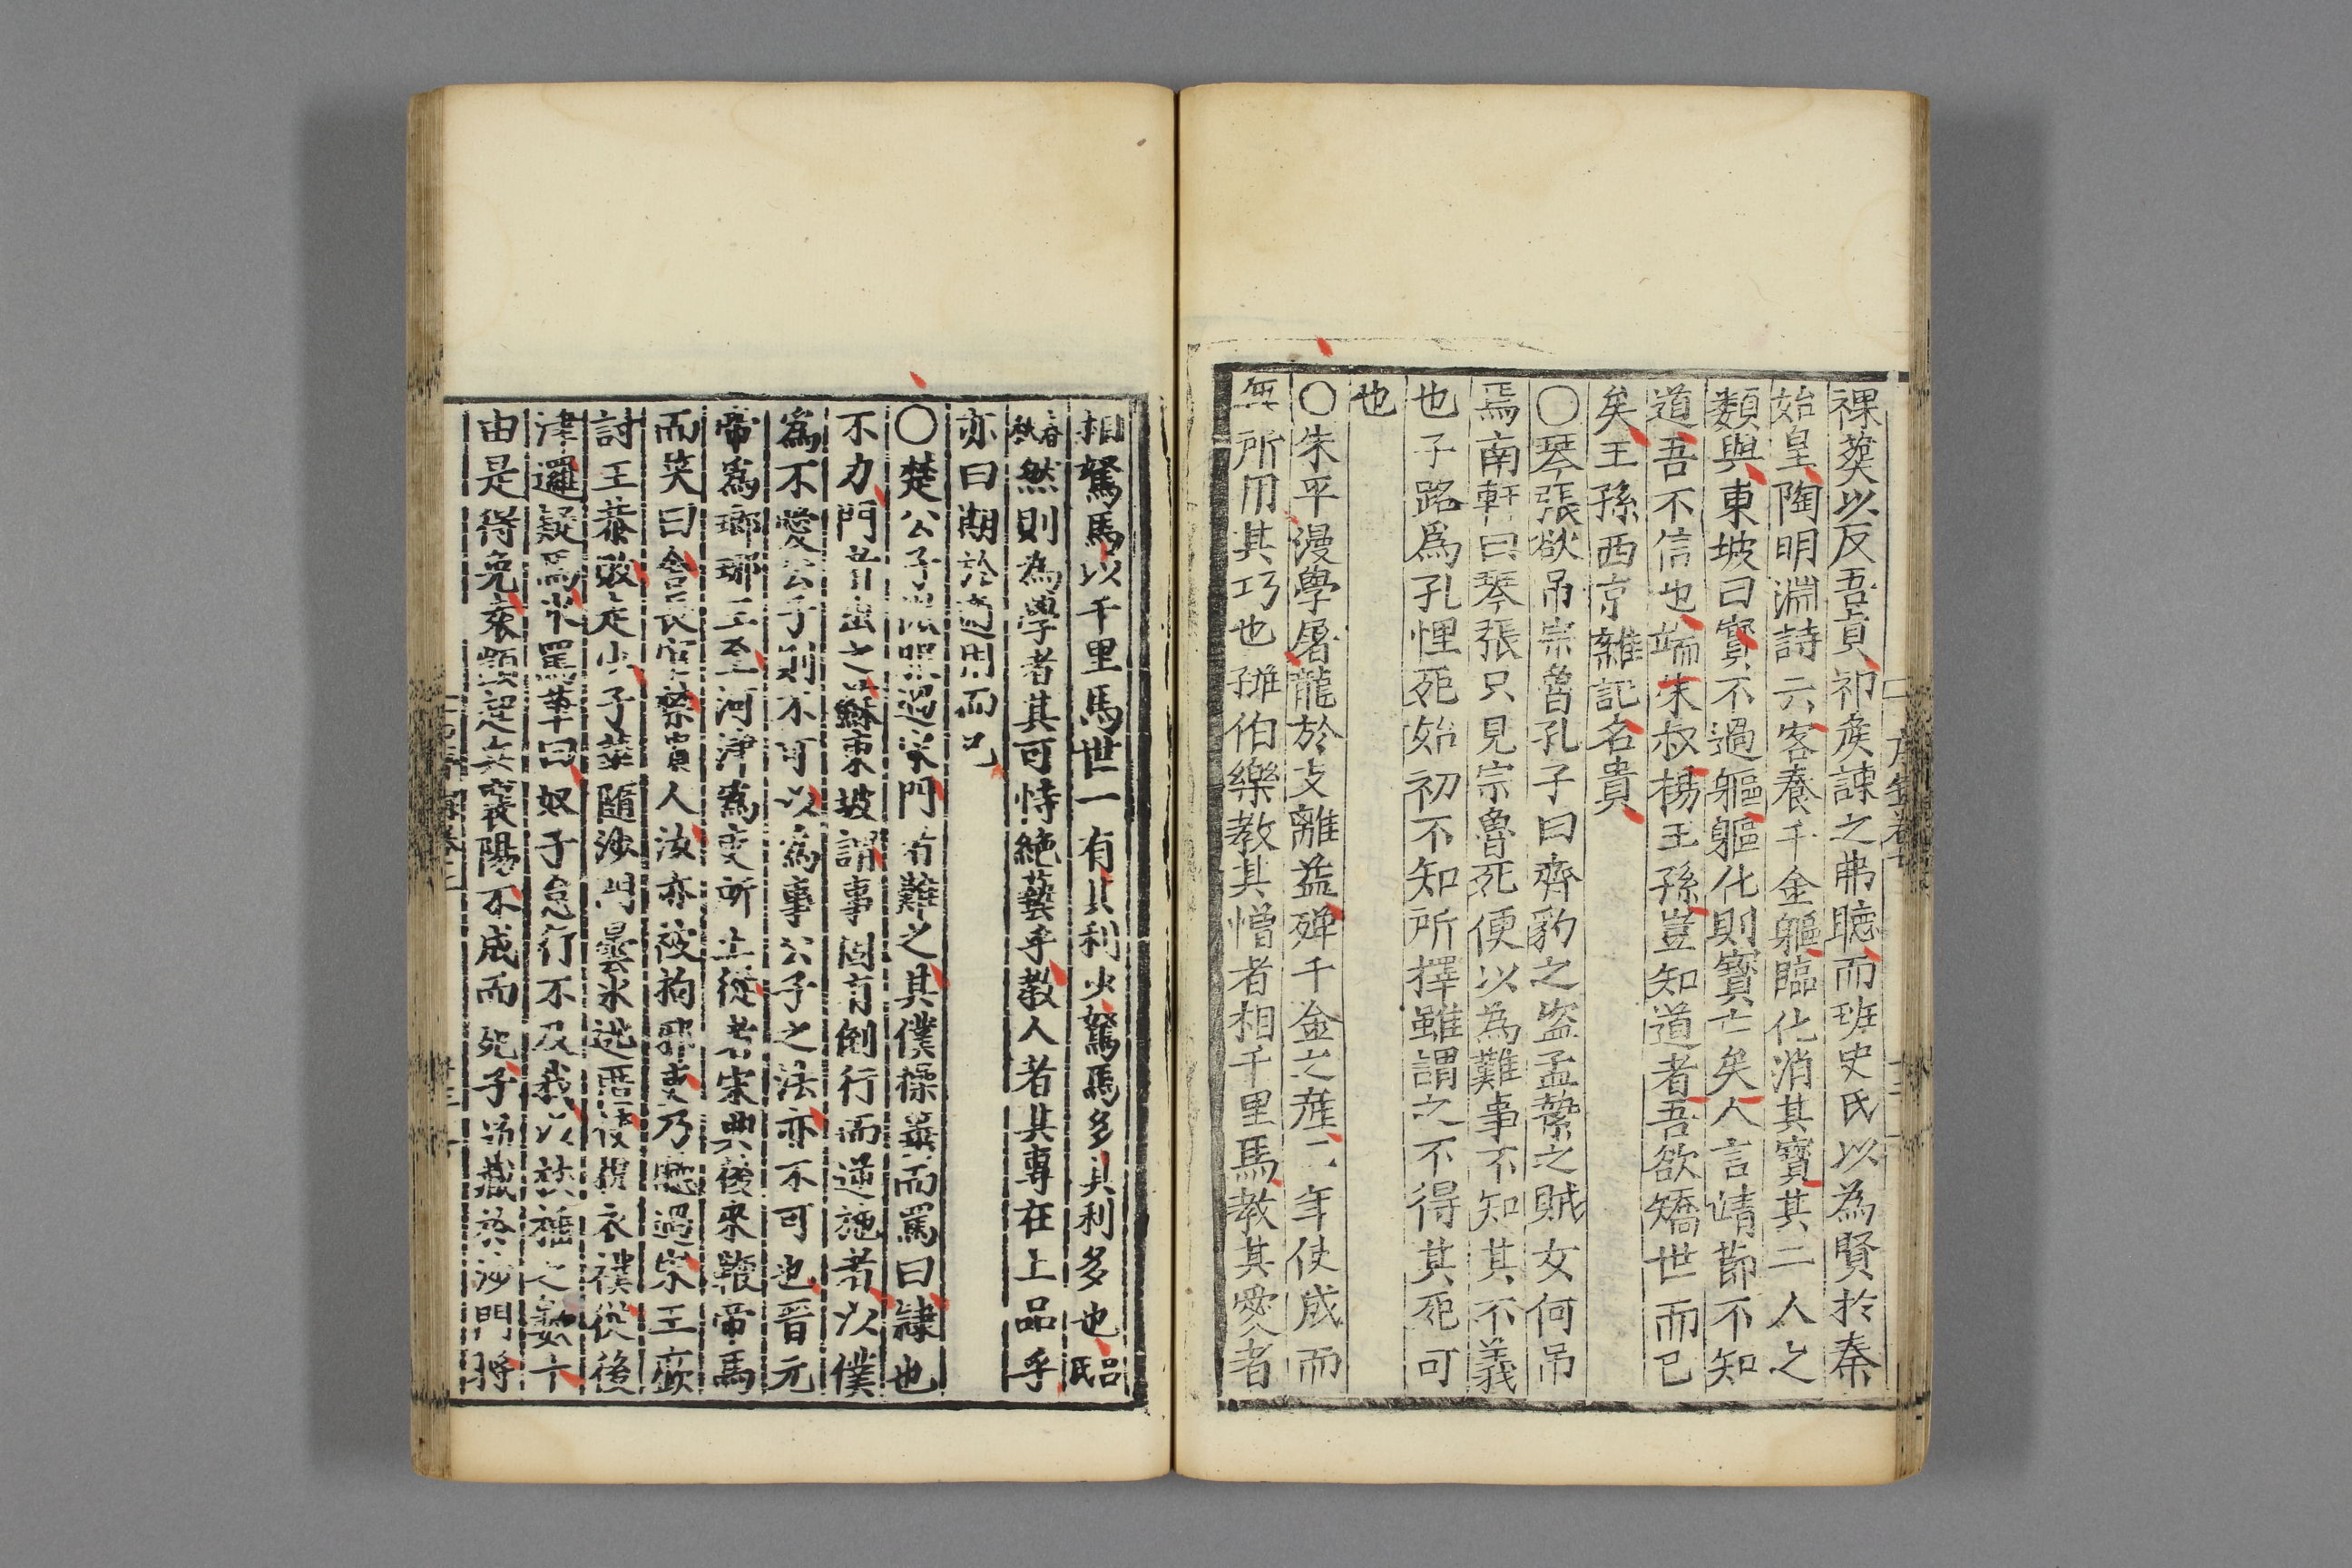 裸葬以反吾真祁侯諫之弗聽而班史氏以為賢於秦
始皇陶明淵詩云客養千金軀臨化消其寶其二人之
類與東坡曰寶不過軀軀化則寶亡矣人言靖節不知
道吾不信也端朱叔楊王孫豈知道者吾欲矯世而已
矣王孫西京雜記名貴
〇琴張欲吊宗魯孔子曰齊豹之盜孟縶之賊女何吊
焉南軒曰琴張只見宗魯死便以為難事不知其不義
也子路為孔悝死始初不知所擇雖謂之不得其死可
也
〇朱平漫學屠龍於支離益殫千金之產二年使成而
無所用其巧也孫伯樂教其憎者相千里馬教其愛者
相駑馬以千里馬世一有其利少駑馬多其利多也呂氏
春秋然則為學者其可恃絶藝乎教人者其專在上品乎
亦曰期於適用而已
〇楚公子過宋門者難之其僕操箠而罵曰隸也
不力門者出之蘇東坡謂事固有倒行而逆施者以僕
為不愛公子則不可以為事公子之法亦不可也晉元
帝為瑯琊王至河津為吏所止從者宋典後來鞭帝馬
而笑曰舍長官禁貴人汝亦被拘邪吏乃聽過宋王歆
討王恭敗走少子華隨沙門曇冰逃匿使提衣襆從後
津邏疑焉冰罵華曰奴子怠行不及我以杖捶之數十
由是得免袁顗起兵襄陽不成而死子昂藏於沙門將